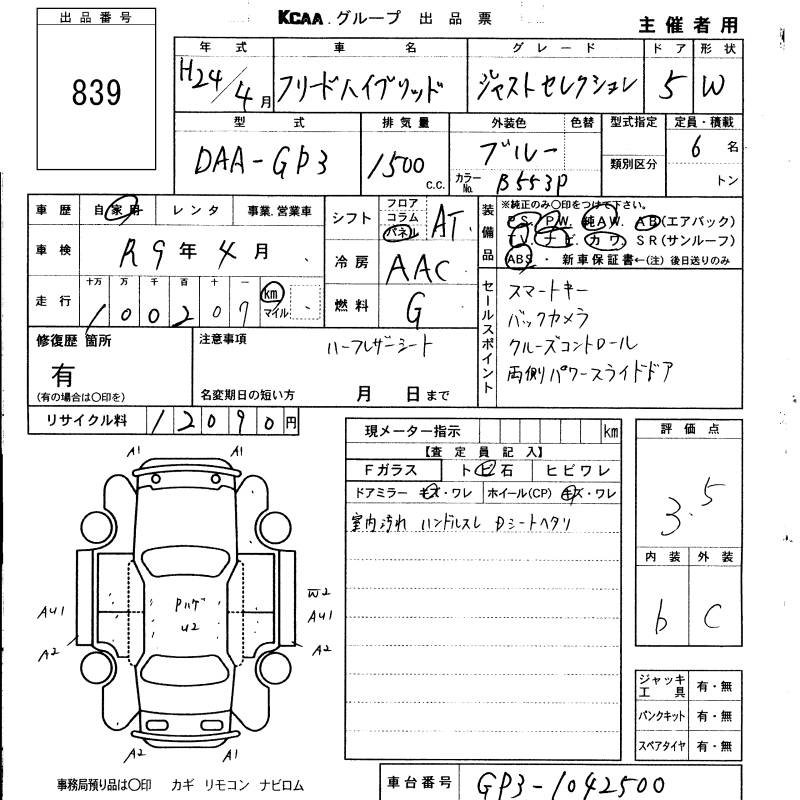 出品番号
KCAA グループ 出品票
主催者用
839
年式 車名 グレード ドア 形状
H24/4月 フリードハイブリッド ジャストセレクション 5 W
型式 排気量 外装色 色替 型式指定 定員・積載
DAA-GP3 1500 c.c. ブルー 類別区分 6名
カラーNo. B553P トン
車歴 自家用 レンタ 事業.営業車
シフト フロア コラム パネル AT
装備品 ※純正のみ○印をつけて下さい。
PS. PW. 純AW. AB(エアバック)
TV. ナビ. カワ. SR(サンルーフ)
ABS・ 新車保証書←(注) 後日送りのみ
車検 R9年4月
冷房 AAC
走行 十万 万 千 百 十 一
100207 km マイル
燃料 G
セールスポイント
スマートキー
バックカメラ
クルーズコントロール
両側パワースライドドア
修復歴 箇所
有
(有の場合は○印を)
注意事項
ハーフレザーシート
名変期日の短い方 月 日まで
リサイクル料 12090円
現メーター指示 km
【査定員記入】
Fガラス トビ石 ヒビワレ
ドアミラー キズ・ワレ ホイール(CP) キズ・ワレ
室内汚れ ハンドルスレ Dシートヘタリ
評価点
3.5
内装 外装
b C
A1 A1
Pハゲ
U2
W2
AU1 AU1
A2 A2
A2 A1
ジャッキ工具 有・無
パンクキット 有・無
スペアタイヤ 有・無
事務局預り品は○印 カギ リモコン ナビロム
車台番号 GP3-1042500